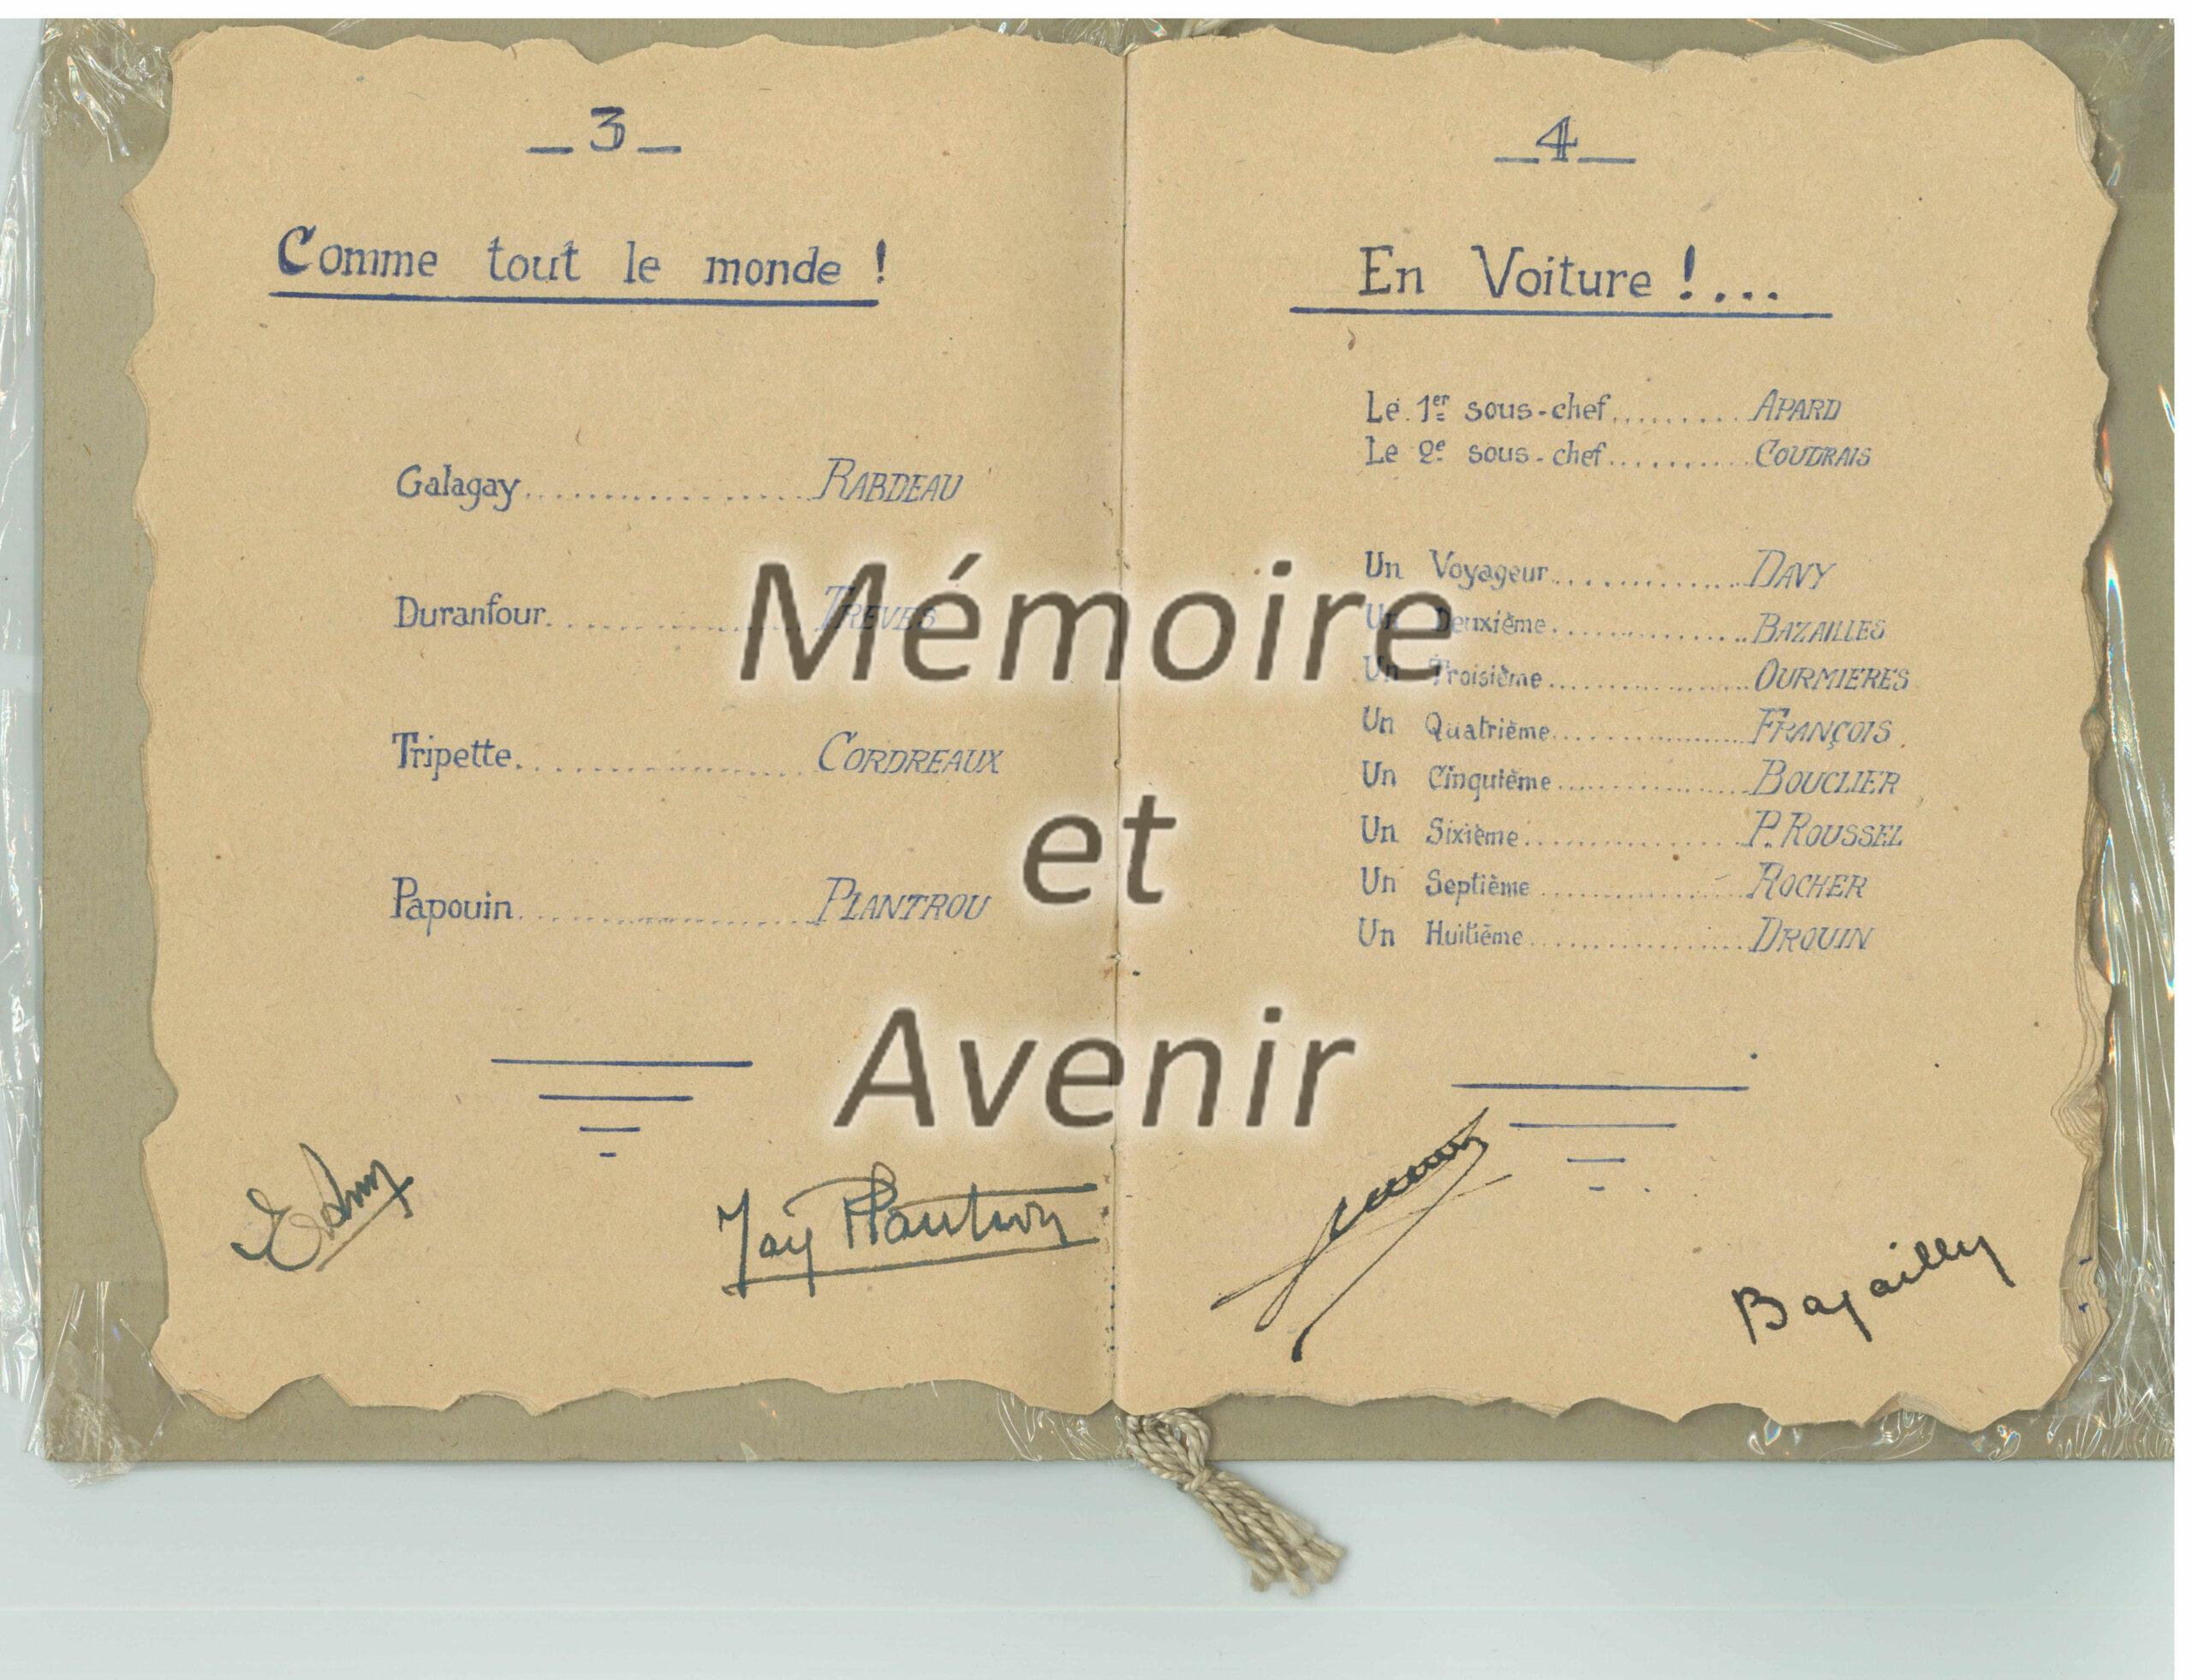 _ 3 _
Comme tout le monde !
Galagay.................. RABDEAU
Duranfour................ TREVES
Tripette.................. CORDREAUX
Papouin.................. PLANTROU
_ 4 _
En Voiture !...
Le 1er sous-chef......... APARD
Le 2e sous-chef.......... COUDRAIS
Un Voyageur.............. DAVY
Un Deuxième.............. BAZAILLES
Un Troisième.............. OURMIERES
Un Quatrième.............. FRANÇOIS
Un Cinquième.............. BOUCLIER
Un Sixième.............. P. ROUSSEL
Un Septième.............. ROCHER
Un Huitième.............. DROUIN
Plantrou
Mémoire
et
Avenir